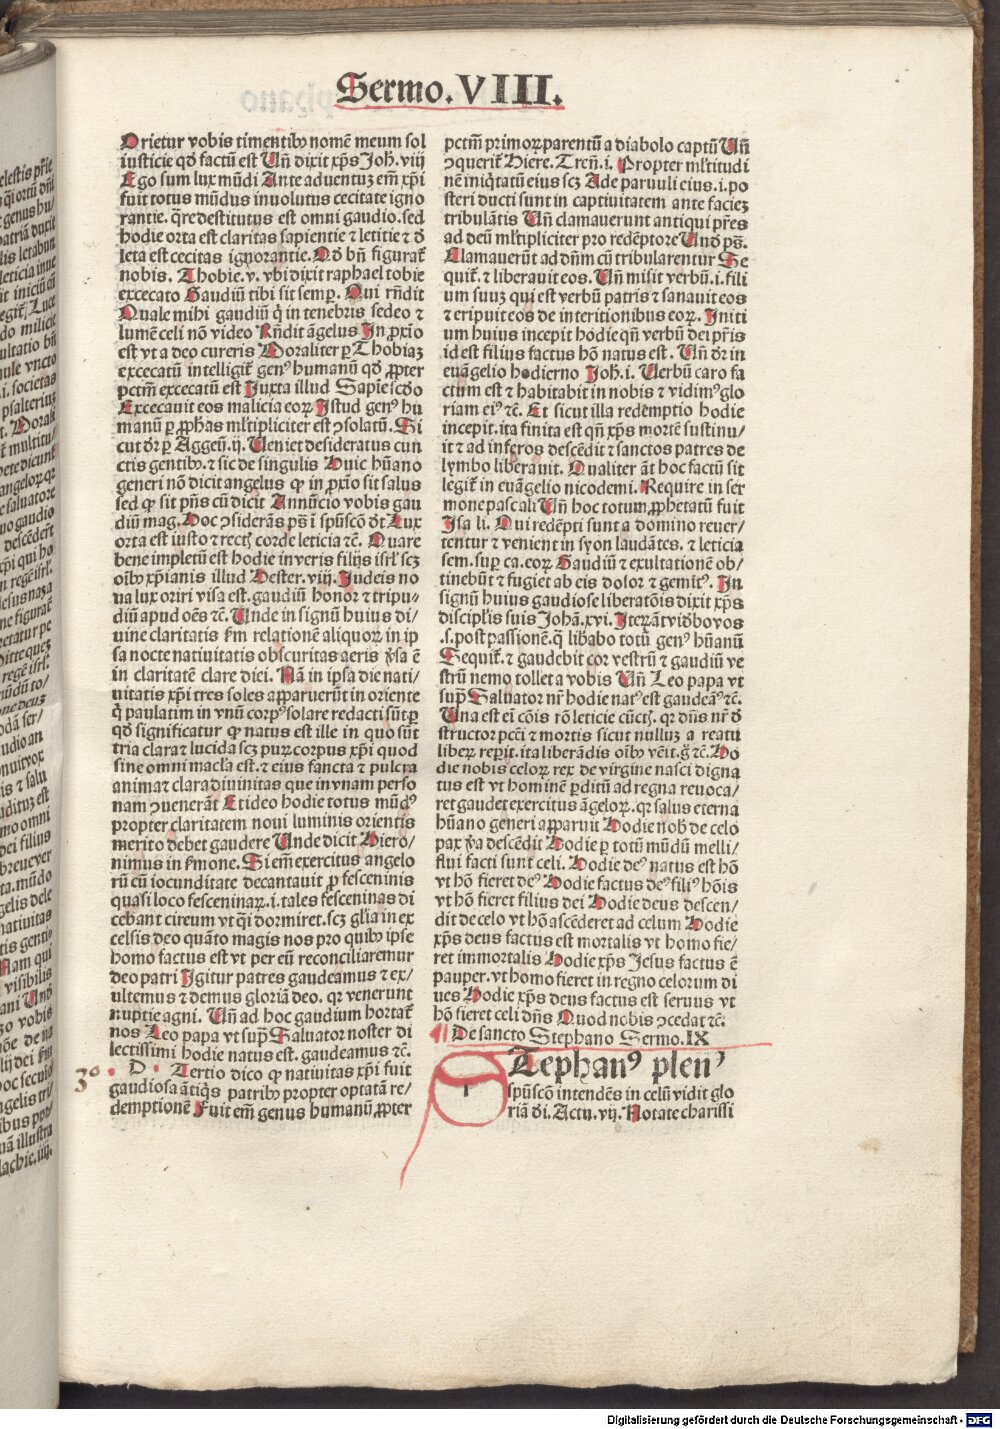 Sermo. VIII.
Orietur vobis timentibꝰ nomē meum sol
iusticie qđ factū est Uñ dixit xp̄s Joh. viij
Ego sum lux mūdi Ante aduentuz em̄ xp̄i
fuit totus mūdus inuolutus cecitate igno
rantie. q̄re destitutus est omni gaudio. sed
hodie orta est claritas sapientie ⁊ letitie ⁊ đ
leta est cecitas ignorantie. Qđ bñ figurat̄
nobis. Thobie. v. vbi dixit raphael tobie
excecato Gaudiū tibi sit semꝑ. Qui rñdit
Quale mihi gaudiū q̇ in tenebris sedeo ⁊
lumē celi nō video Rñdit āgelus In ꝓxīo
est vt a deo cureris Moraliter ꝑ Thobiaz
excecatū intelligit̄ genꝰ humanū qđ ꝓpter
pctm̄ excecatū est Juxta illud Sapie scđo
Excecauit eos malicia eoꝝ Istud genꝰ hu
manū ꝑ ꝓphas ml̄tipliciter est ꝯsolatū. Si
cut dr̄ ꝑ Aggeū. ij. Ueniet desideratus cun
ctis gentibꝰ. ⁊ sic de singulis Huic hūano
generi nō dicit angelus ꝙ in ꝓxīo sit salus
sed ꝙ sit pñs cū dicit Annūcio vobis gau
diū mag. Hoc ꝯsiderās ps̄ ī spūscō dr̄t Lux
orta est iusto ⁊ rectꝭ corde leticia ⁊c̄. Quare
bene impletū est hodie in veris filijs isrl̄ scꝫ
oībꝰ xp̄ianis illud Hester. viij. Judeis no
ua lux oriri visa est. gaudiū honor ⁊ tripu-
diū apud oēs ⁊c̄. Unde in signū huius di-
uine claritatis s̄m relationē aliquoꝝ in ip
sa nocte natiuitatis obscuritas aeris v̄sa ē
in claritatē clare diei. Nā in ipsa die nati-
uitatis xp̄i tres soles apparuerūt in oriente
q̇ paulatim in vnū corpꝰ solare redacti sūt ꝑ
qđ significatur ꝙ natus est ille in quo sūt
tria clara ⁊ lucida scꝫ puꝝ corpus xp̄i quod
sine omni macl̄a est. ⁊ eius sancta ⁊ pulcra
anima ⁊ clara diuinitas que in vnam perso
nam ꝯuenerāt Et ideo hodie totus mūdꝰ
propter claritatem noui luminis orientis
merito debet gaudere Unde dicit Hiero-
nimus in s̄mone. Si em̄ exercitus angelo
rū cū iocunditate decantauit ꝓ fesceninis
quasi loco fesceninaꝝ. i. tales fesceninas di
cebant cireum vt q̇i dormiret. scꝫ gl̄ia in ex
celsis deo quāto magis nos pro quibꝰ ipse
homo factus est vt per eū reconciliaremur
deo patri Igitur patres gaudeamus ⁊ ex-
ultemus ⁊ demus gloriā deo. qr venerunt
nuptie agni. Uñ ad hoc gaudium hortat̄
nos Leo papa vt supͣ Saluator noster di
lectissimi hodie natus est. gaudeamus ⁊c̄.
3º · D · Tertio dico ꝙ natiuitas xp̄i fuit
gaudiosa ātiq̇s patribꝰ propter optatā re-
demptionē Fuit em̄ genus humanū ꝓpter
pctm̄ primoꝝ parentū a diabolo captū Uñ
ꝯquerit̄ Hiere. Treñ. i. Propter ml̄titudi
nē iniq̇tatū eius scꝫ Ade paruuli eius. i. po
steri ducti sunt in captiuitatem ante faciez
tribulātis Uñ clamauerunt antiqui p̄res
ad deū ml̄tipliciter pro redēptore Unđ ps̄.
Clamauerūt ad dñm cū tribularentur Se
quit̄. ⁊ liberauit eos. Uñ misit verbū. i. fili
um suuz qui est verbū patris ⁊ sanauit eos
⁊ eripuit eos de interitionibus eoꝝ. Initi
um huius incepit hodie qñ verbū dei p̄ris
id est filius factus hō natus est. Uñ dr̄ in
euāgelio hodierno Joh. i. Uerbū caro fa
ctum est ⁊ habitabit in nobis ⁊ vidimꝰ glo
riam eiꝰ ⁊c̄. Et sicut illa redēmptio hodie
incepit. ita finita est qñ xp̄s mortē sustinu-
it ⁊ ad inferos descēdit ⁊ sanctos patres de
lymbo liberauit. Qualiter āt hoc factū sit
legit̄ in euāgelio nicodemi. Require in ser
mone pascali Uñ hoc totum ꝓphetatū fuit
Isa li. Qui redēpti sunt a domino reuer-
tentur ⁊ venient in syon laudātes. ⁊ leticia
sem. suꝑ ca. eoꝝ Gaudiū ⁊ exultationē ob-
tinebūt ⁊ fugiet ab eis dolor ⁊ gemitꝰ. In
signū huius gaudiose liberatōis dixit xp̄s
discipl̄is suis Johā. xvi. Iteꝝ āt vidbo vos
.s. post passionē. q̇ lib̄abo totū genꝰ hūanū
Sequit̄. ⁊ gaudebit cor vestrū ⁊ gaudiū ve
strū nemo tollet a vobis Uñ Leo papa vt
supͣ Saluator nr̄ hodie natꝰ est gaudeāꝰ ⁊c̄.
Una est eī cōis rō leticie cūctꝭ. qr dñs nr̄ đ
structor pctī ⁊ mortis sicut nulluz a reatu
liberꝝ reꝑit. ita liberādis oībꝰ vēit. g̊ ⁊c̄. Ho
die nobis celoꝝ rex de virgine nasci digna
tus est vt hominē ꝑditū ad regna reuoca-
ret gaudet exercitus āgeloꝝ. qr salus eterna
hūano generi apparuit Hodie nob̄ de celo
pax v̄a descēdit Hodie ꝑ totū mūdū melli-
flui facti sunt celi. Hodie deꝰ natus est hō
vt hō fieret deꝰ Hodie factus deꝰ filiꝰ hōis
vt hō fieret filius dei Hodie deus descen-
dit de celo vt hō ascēderet ad celum Hodie
xp̄s deus factus est mortalis vt homo fie-
ret immortalis Hodie xp̄s Jesus factus ē
pauper. vt homo fieret in regno celorum di
ues Hodie xp̄s deus factus est seruus vt
hō fieret celi dñs Quod nobis ꝯcedat ⁊c̄.
De sancto Stephano Sermo. IX
Tephanꝰ plenꝰ
spūscō intendēs in celū vidit glo
riā di. Actu. vij. Notate charissi
Digitalisierung gefördert durch die Deutsche Forschungsgemeinschaft - DFG